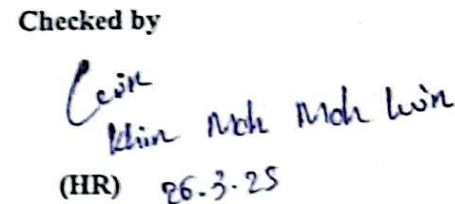 Checked by
Khin Moh Moh Win
(HR) 26.3.25